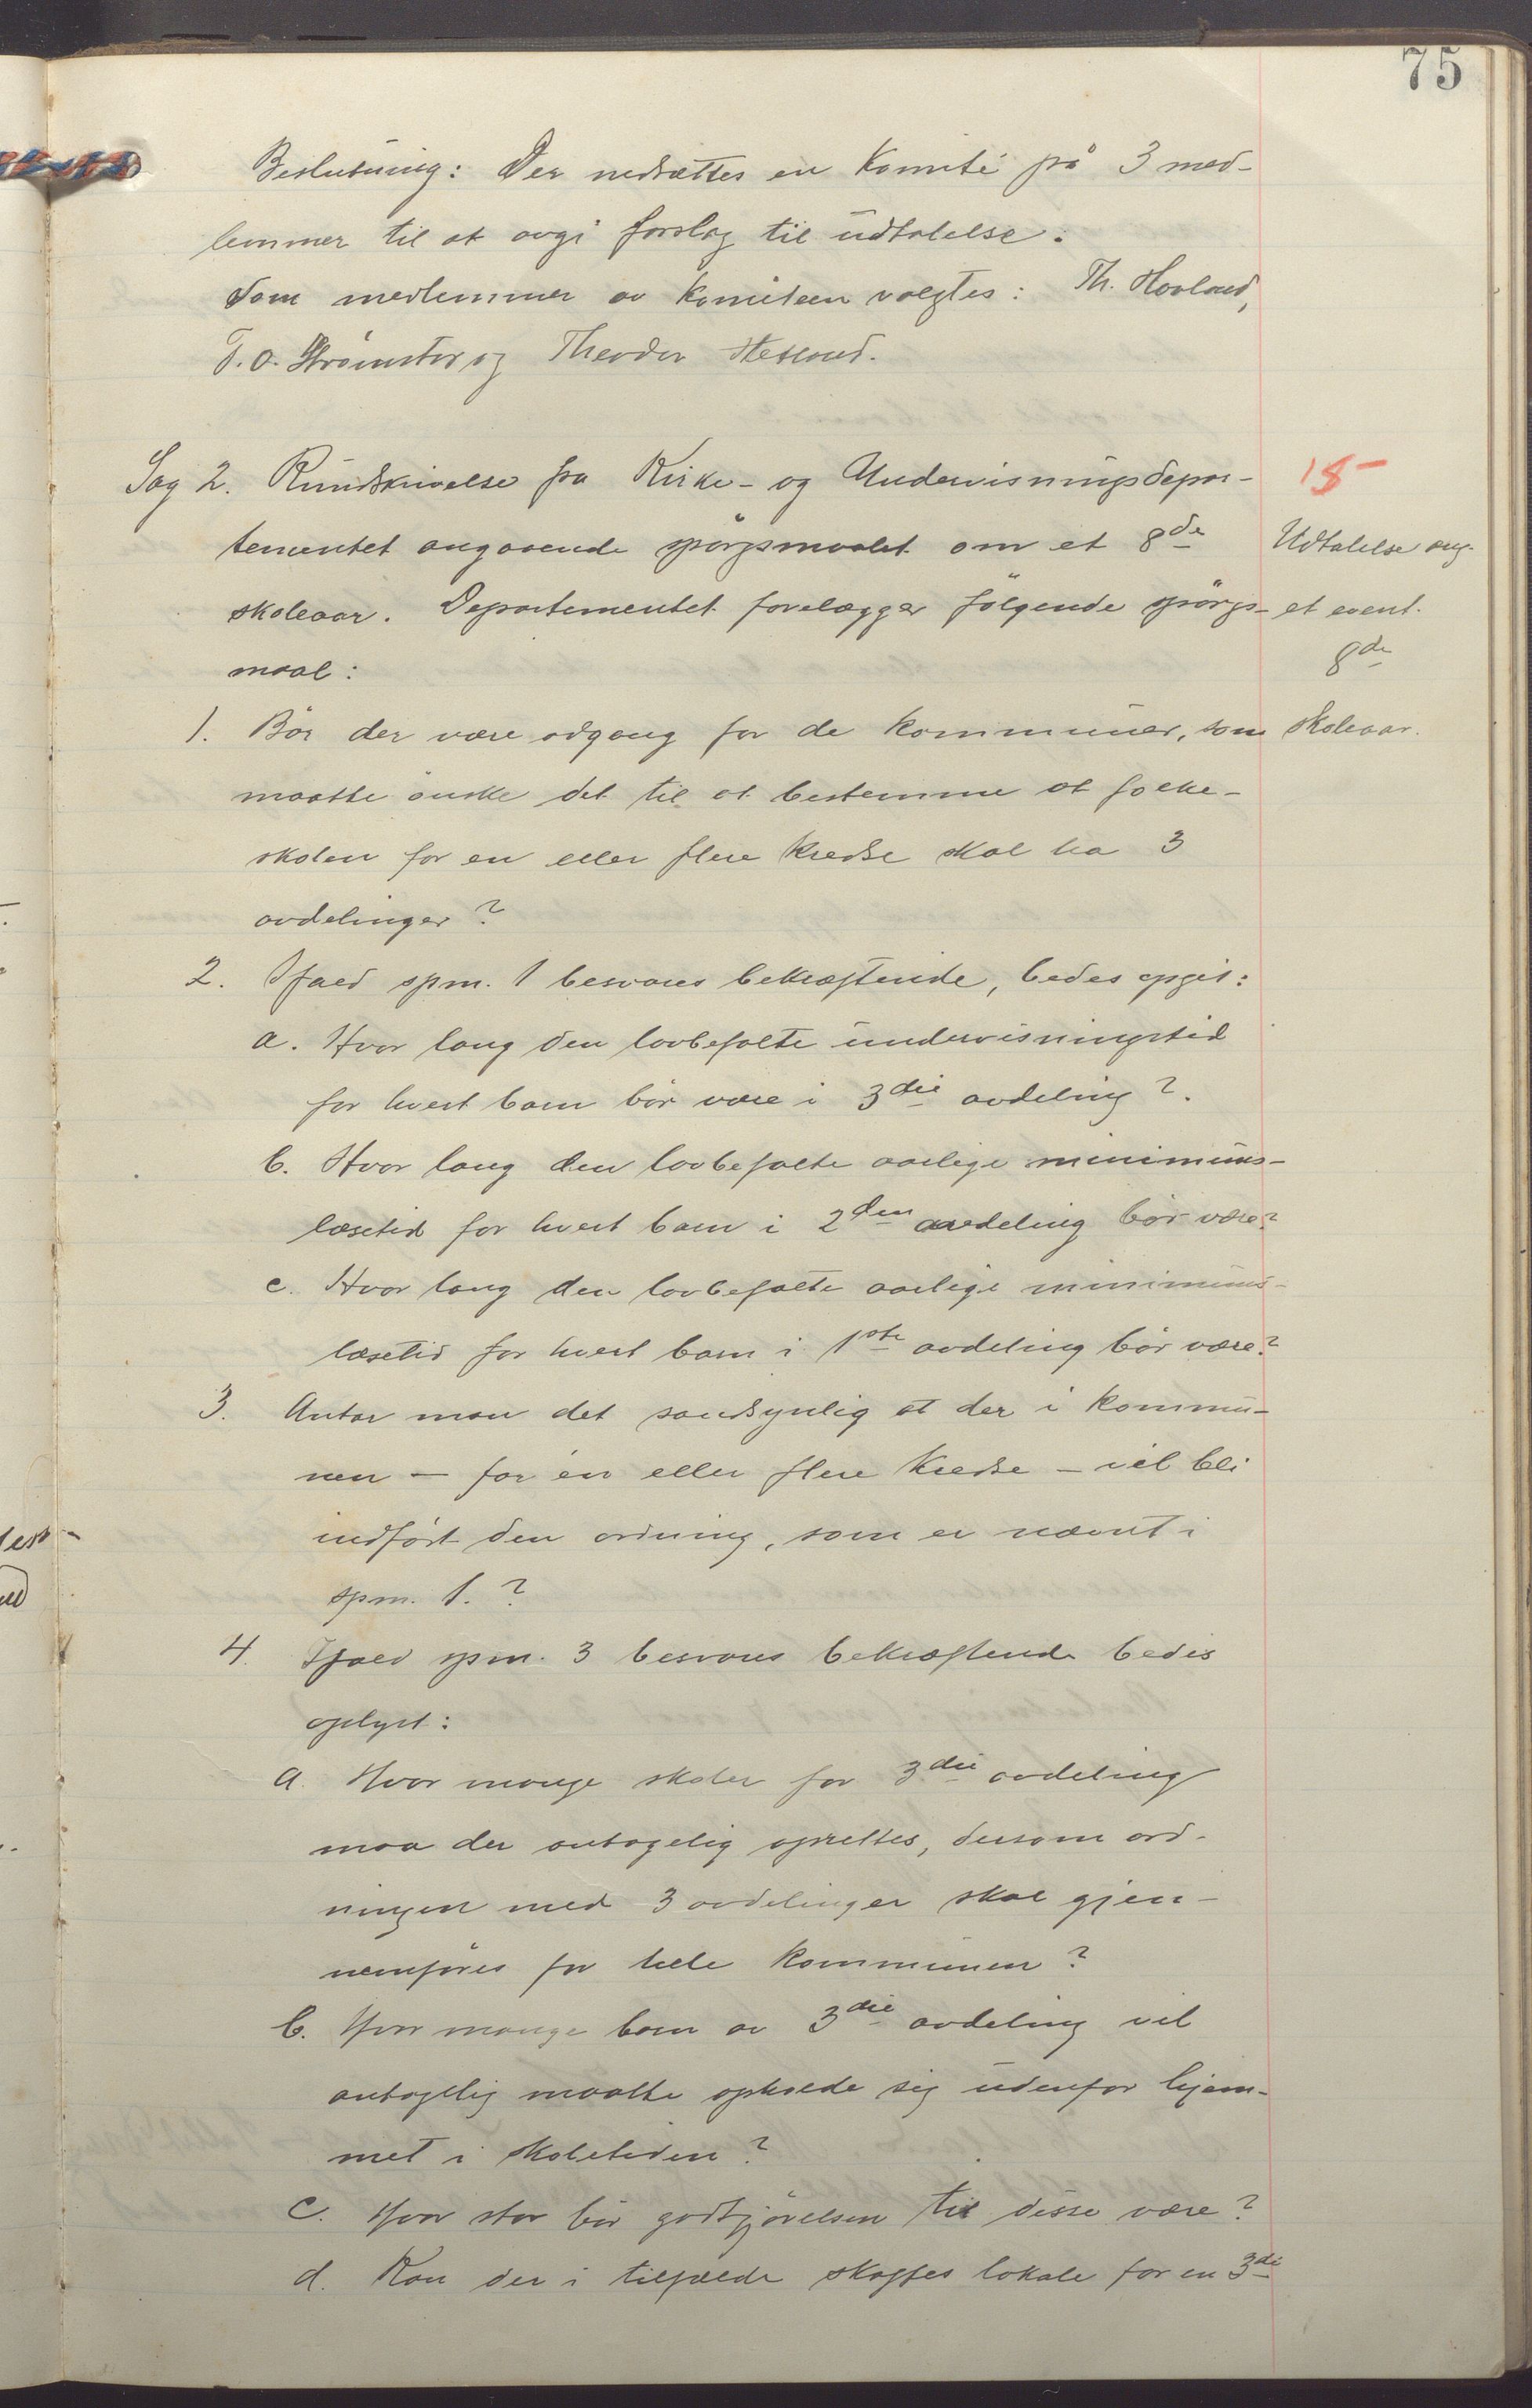 75
Beslutning: Der nedsættes en Komité på 3 med-
lemmer til at avgi forslag til udtalelse.
Som medlemmer av Komiteen valgtes: Th. Hovland,
T. O. og Theodor
Sag 2. Rundskrivelse fra Kirke- og Undervisningsdepar-
tementet angaaende spörgsmaalet om et 8de
skoleaar. Departementet forelægger fölgende spörgs-
maal:
15-
Udtalelse ang.
et event.
8de
skoleaar.
1. Bör der være adgang for de kommuner, som
maatte önske det til at bestemme at folke-
skolen for en eller flere kredse skal ha 3
avdelinger?
2. Ifald spm. 1 besvares bekræftende, bedes opgit:
a. Hvor lang den lovbefalte undervisningstid
for hvert barn bör være i 3die avdeling?
b. Hvor lang den lovbefalte aarlige minimums-
læsetid for hvert barn i 2den avdeling bör være?
c. Hvor lang den lovbefalte aarlige minimums-
læsetid for hvert barn i 1ste avdeling bör være?
3. Antar man det sandsynlig at der i kommu-
nen - for én eller flere kredse - vil bli
indfört den ordning, som er nævnt i
spm. 1.?
4. Ifald spm. 3 besvares bekræftende bedes
oplyst:
a. Hvor mange skoler for 3die avdeling
maa der antagelig oprettes, dersom ord-
ningen med 3 avdelinger skal gjen-
nemföres for hele kommunen?
b. Hvor mange barn av 3die avdeling vil
antagelig maatte opholde sig udenfor hjem-
met i skoletiden?
c. Hvor stor bör godtgjörelsen til disse være?
d. Kan der i tilfælde skaffes lokale for en 3die